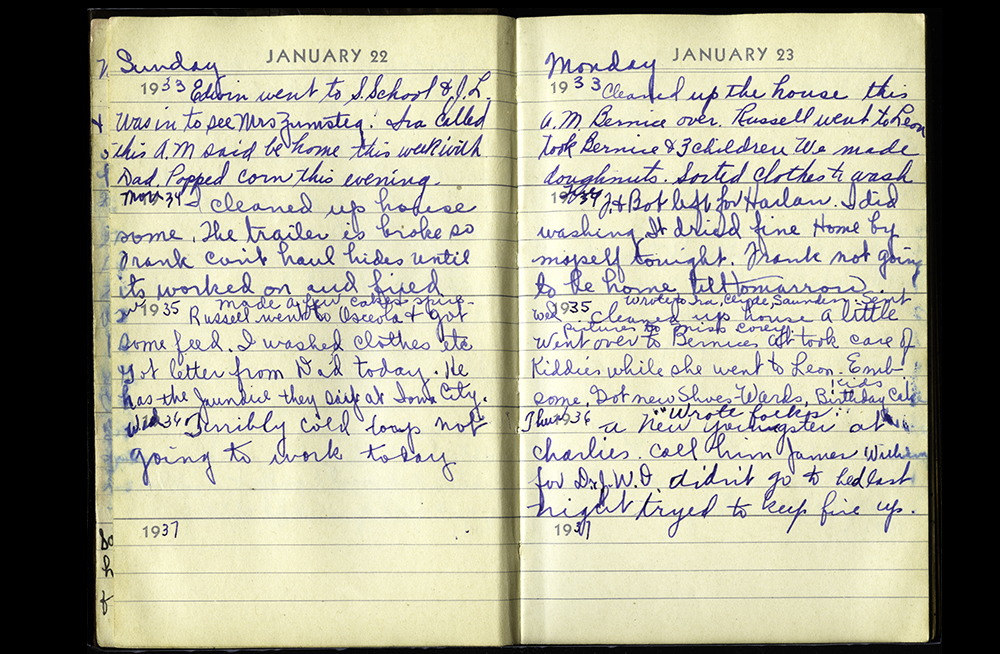 JANUARY 22
Sunday
1933 Edwin went to S. School & J. L.
Was in to see Mrs Zumsteg. Ira called
this A.M said be home this week with
Dad. Popped corn this evening.
Mon 34 I cleaned up house
some. The trailer is broke so
Frank can't haul hides until
its worked on and fixed
made a few cakes spice
1935 Russell went to Osceola & got
some feed. I washed clothes etc
Got letter from Dad today. He
has the jaundice they say at Iowa City.
Wed 36 Terribly cold temp not
going to work today
1937
So
h
f
JANUARY 23
Monday
1933 Cleaned up the house this
A.M Bernice over. Russell went to Leon
took Bernice & 3 children We made
doughnuts. Sorted clothes to wash
1934 J. & Bob left for Harlan. I did
washing It dried fine Home by
mopself tonight. Frank not going
to be home till tomarrow.
Wrote to Ira, Clyde, Saundery. Sent
Wed 1935 cleaned up house a little
pictures to miss corey.
Went over to Bernices aft took care of
Kiddies while she went to Leon. Emb
some, Got new Shoes-Wards, Birthday Cake
Kids
Thur 1936 "Wrote folks"
a new youngster at
charlies. call him James William
for Dr. J. W. D. didn't go to bed last
night tryed to keep fire up.
1937